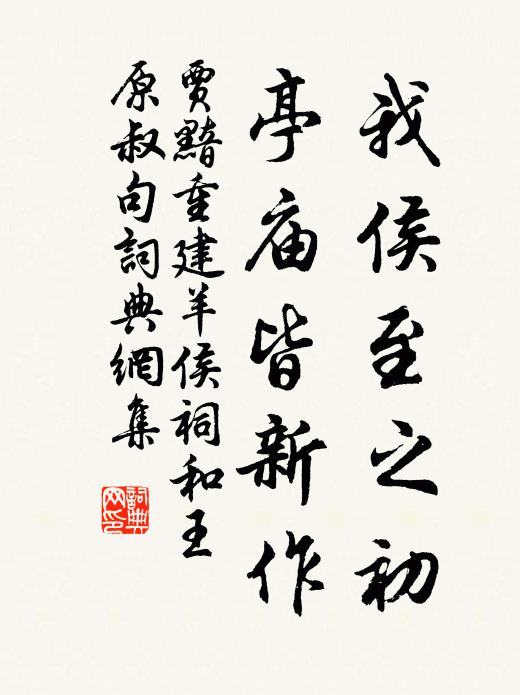 我侯至之初
亭庙皆新作
贾黯重建羊侯祠和王
原叔句詞典網集
詞典
网印